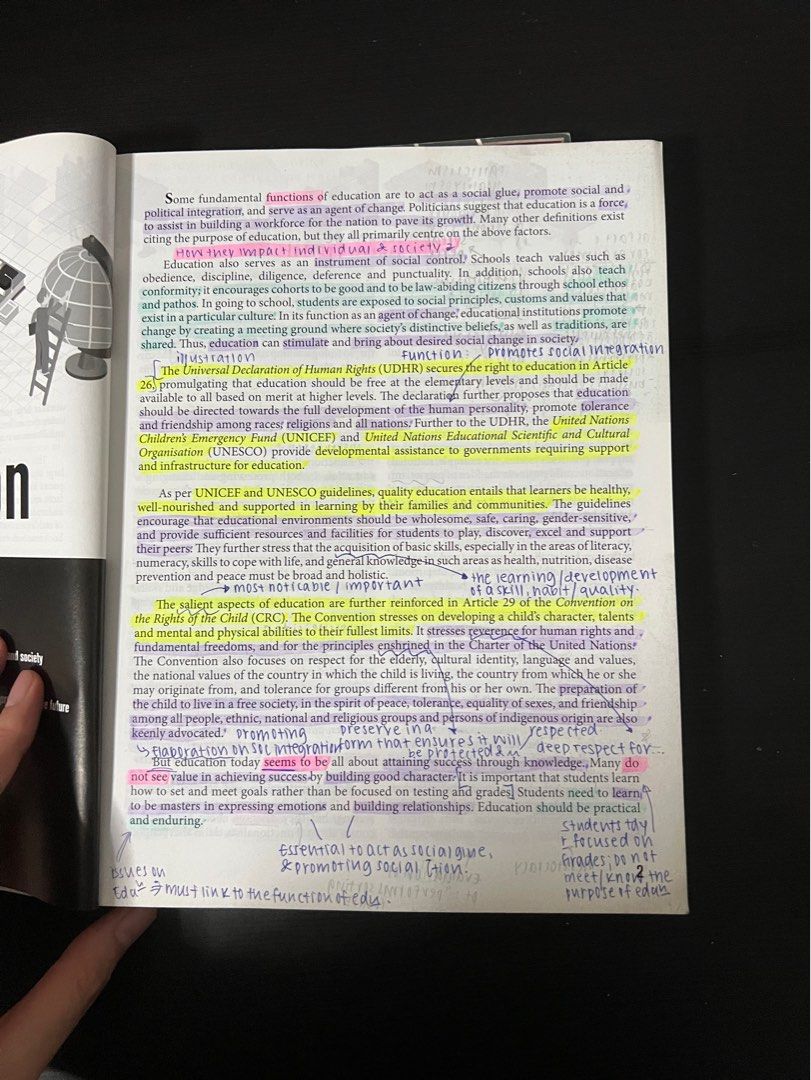 n
nd society
e future
Some fundamental functions of education are to act as a social glue, promote social and
political integration, and serve as an agent of change. Politicians suggest that education is a force,
to assist in building a workforce for the nation to pave its growth. Many other definitions exist
citing the purpose of education, but they all primarily centre on the above factors.
How they impact individual & society?
Education also serves as an instrument of social control. Schools teach values such as
obedience, discipline, diligence, deference and punctuality. In addition, schools also teach
conformity; it encourages cohorts to be good and to be law-abiding citizens through school ethos
and pathos. In going to school, students are exposed to social principles, customs and values that
exist in a particular culture. In its function as an agent of change, educational institutions promote
change by creating a meeting ground where society's distinctive beliefs, as well as traditions, are
shared. Thus, education can stimulate and bring about desired social change in society.
illustration function: promotes social integration
The Universal Declaration of Human Rights (UDHR) secures the right to education in Article
26, promulgating that education should be free at the elementary levels and should be made
available to all based on merit at higher levels. The declaration further proposes that education
should be directed towards the full development of the human personality, promote tolerance
and friendship among races, religions and all nations. Further to the UDHR, the United Nations
Children's Emergency Fund (UNICEF) and United Nations Educational Scientific and Cultural
Organisation (UNESCO) provide developmental assistance to governments requiring support
and infrastructure for education.
As per UNICEF and UNESCO guidelines, quality education entails that learners be healthy,
well-nourished and supported in learning by their families and communities. The guidelines
encourage that educational environments should be wholesome, safe, caring, gender-sensitive,
and provide sufficient resources and facilities for students to play, discover, excel and support
their peers. They further stress that the acquisition of basic skills, especially in the areas of literacy,
numeracy, skills to cope with life, and general knowledge in such areas as health, nutrition, disease
prevention and peace must be broad and holistic.
the learning/development
→ most noticable/important of a skill, habit/quality.
The salient aspects of education are further reinforced in Article 29 of the Convention on
the Rights of the Child (CRC). The Convention stresses on developing a child's character, talents
and mental and physical abilities to their fullest limits. It stresses reverence for human rights and
fundamental freedoms, and for the principles enshrined in the Charter of the United Nations.
The Convention also focuses on respect for the elderly, cultural identity, language and values,
the national values of the country in which the child is living, the country from which he or she
may originate from, and tolerance for groups different from his or her own. The preparation of
the child to live in a free society, in the spirit of peace, tolerance, equality of sexes, and friendship
among all people, ethnic, national and religious groups and persons of indigenous origin are also
keenly advocated. promoting preserve in a respected
Elaboration on soc integration form that ensures it will be protected & deep respect for...
But education today seems to be all about attaining success through knowledge. Many do
not see value in achieving success by building good character. It is important that students learn
how to set and meet goals rather than be focused on testing and grades. Students need to learn
to be masters in expressing emotions and building relationships. Education should be practical
and enduring.
Essential to act as social glue,
& promoting social Ition.
students tdy
r focused on
grades; do not
meet/know the
purpose of edun
issues on
Edun ⇒ must link to the function of edu.
2